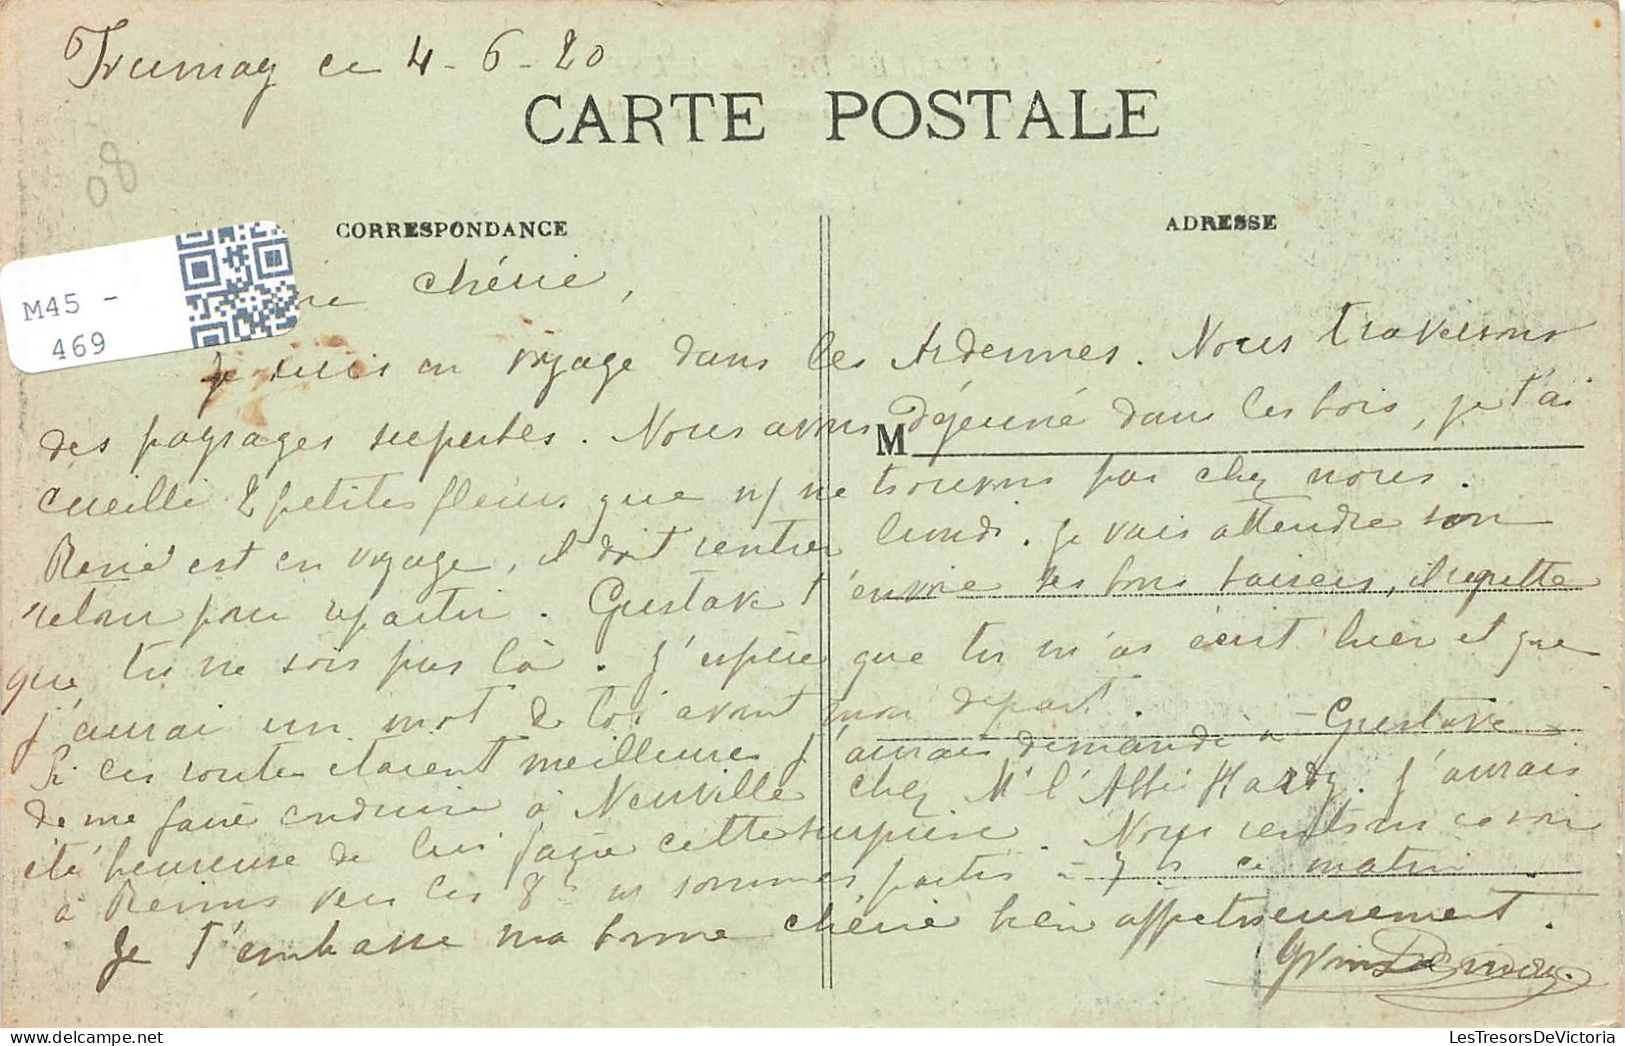 Fumay ce 4-6-20
CARTE POSTALE
08
CORRESPONDANCE
ADRESSE
M45 -
469
chérie,
Je suis en voyage dans les Ardennes. Nous traversons
des paysages superbes. Nous avons déjeuné dans les bois, je t'ai
M
cueilli 2 petites fleurs que ns ne trouvons pas chez nous.
René est en voyage, il doit rentrer lundi. Je vais attendre son
retour pour repartir. Gustave t'envoie ses bons baisers, il regrette
que tu ne sois pas là. J'espère que tu m'as écrit hier et que
j'aurai un mot de toi avant mon départ.
Si les routes étaient meilleures j'aurais demandé à Gustave
de me faire conduire à Neuville chez Mr l'Abbé Hardy. J'aurais
été heureuse de lui faire cette surprise. Nous rentrons ce soir
à Reims vers les 8h ns sommes partis à 7 h ce matin.
Je t'embrasse ma bonne chérie bien affectueusement.